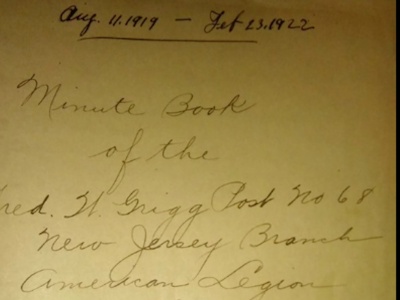 Aug. 11. 1919 — Feb 23. 1922
Minute Book
of the
red. W. Grigg Post No 68
New Jersey Branch
American Legion